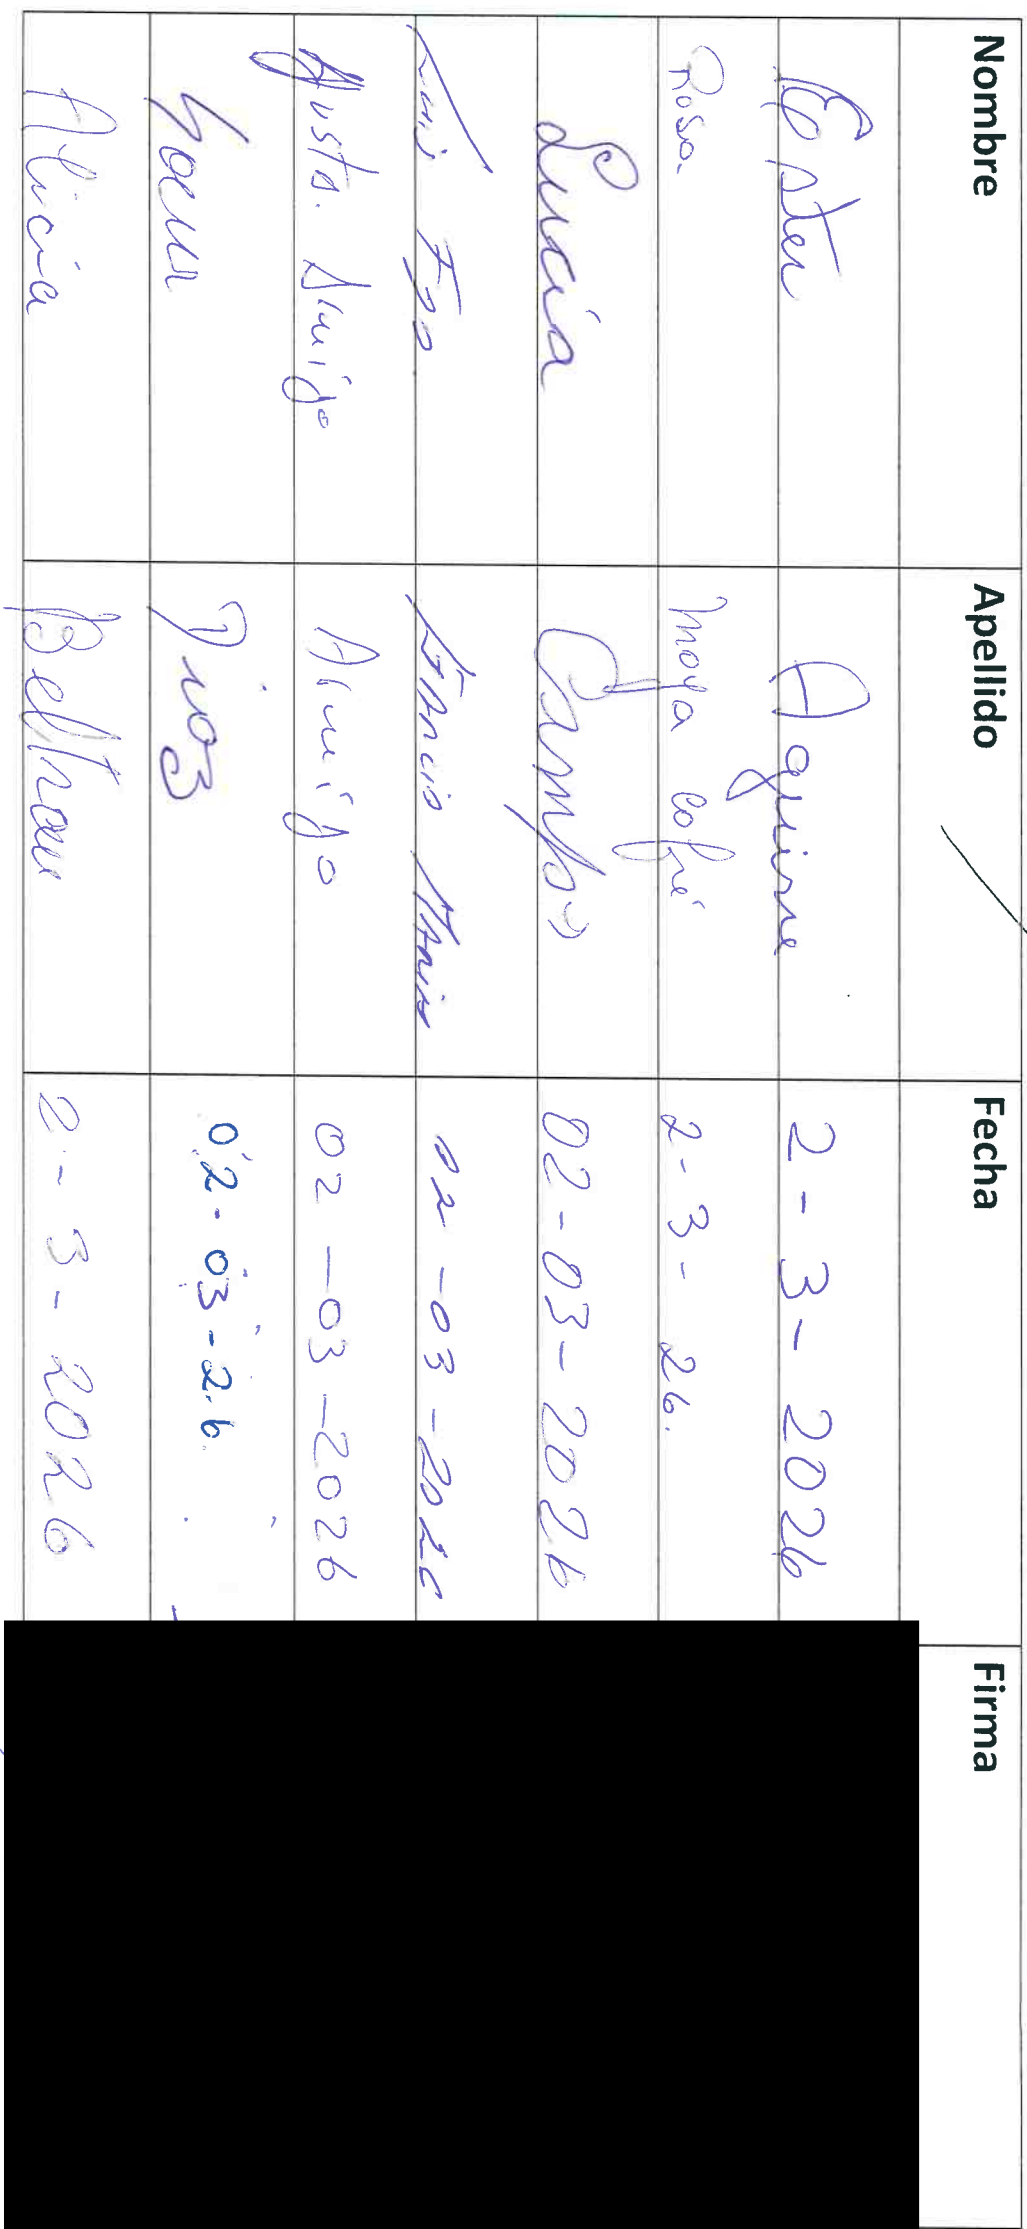 Nombre Apellido Fecha Firma
Ester Aguirre 2-3-2026
Rosa. Moya Cofré 2-3-26.
Lucía Campos 02-03-2026
Luis Fdo 02-03-2026
Armijo 02-03-2026
02-03-26
Alicia Beltran 2-3-2026